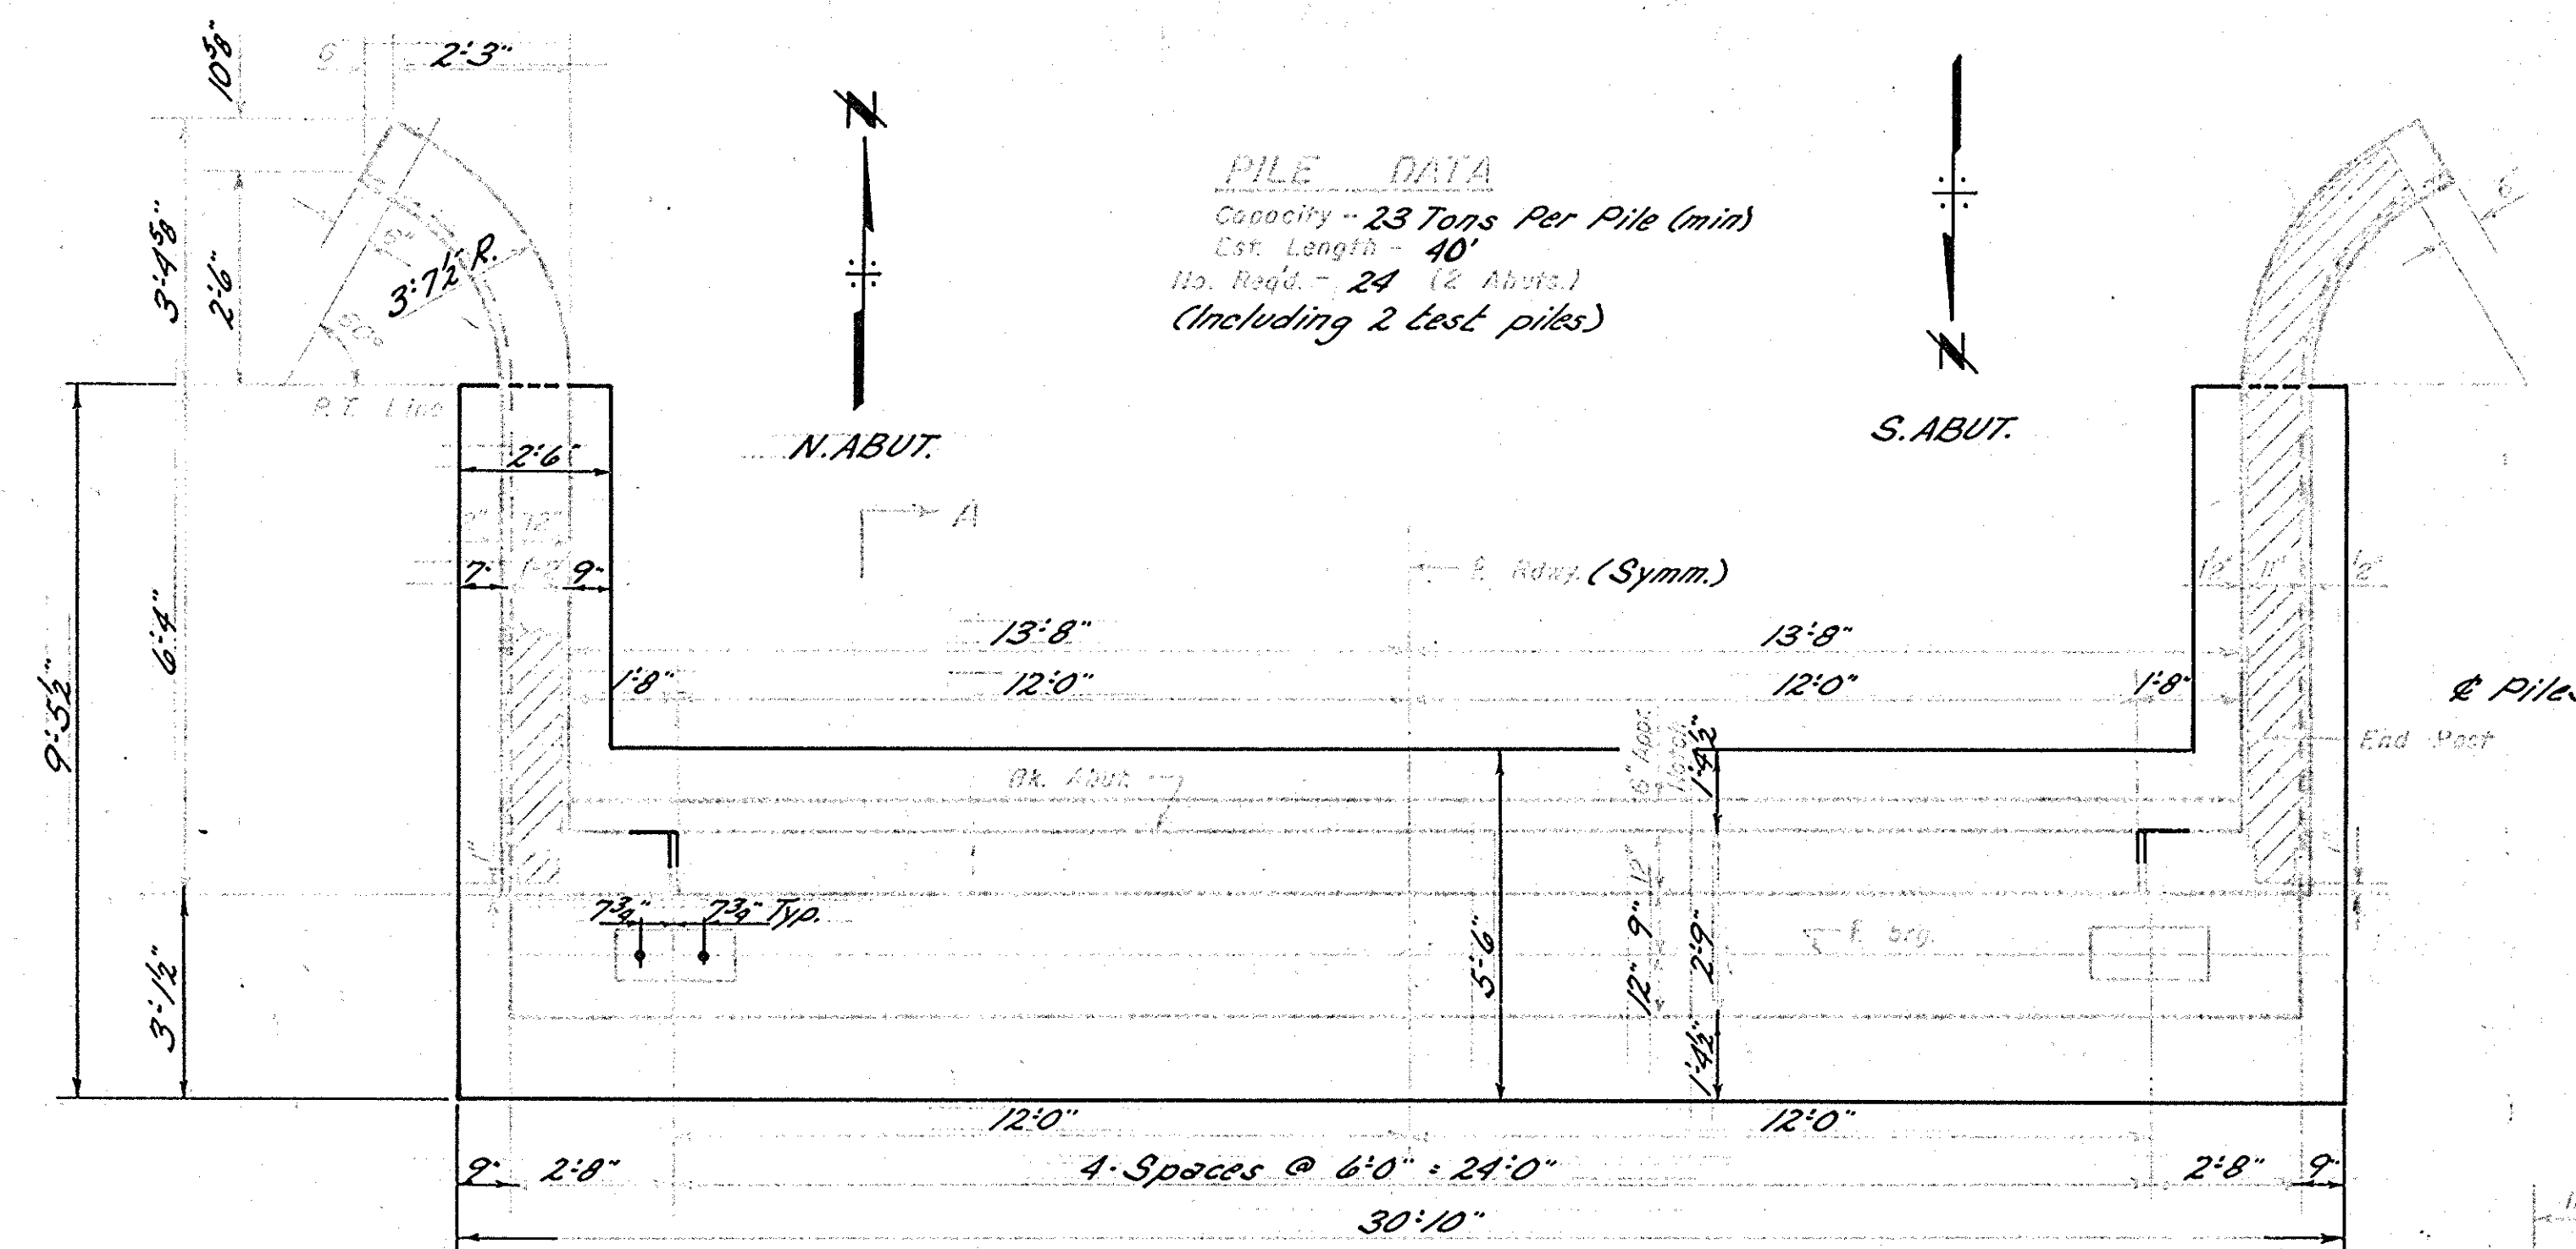 10⅝"
6"
2'-3"
N
PILE DATA
Capacity - 23 Tons Per Pile (min)
Est. Length - 40'
No. Req'd. - 24 (2 Abuts.)
(Including 2 test piles)
3'-4⅝"
2'-6"
3'-7½" R.
60°
6"
N
P.T. Line
N. ABUT.
S. ABUT.
2'-6"
A
7"
1'-2"
9"
℄ Rdwy. (Symm.)
½"
11"
½"
9'-5½"
6'-4"
13'-8"
13'-8"
1'-8"
12'-0"
12'-0"
1'-8"
℄ Piles
End Post
Bk. Abut.
6" Appr.
Notch
1'-4½"
1"
7¾"
7¾" Typ.
5'-6"
12"
9"
12"
2'-9"
℄ brg.
3'-1½"
1'-4½"
12'-0"
12'-0"
9"
2'-8"
4-Spaces @ 6'-0" = 24'-0"
2'-8"
9"
30'-10"